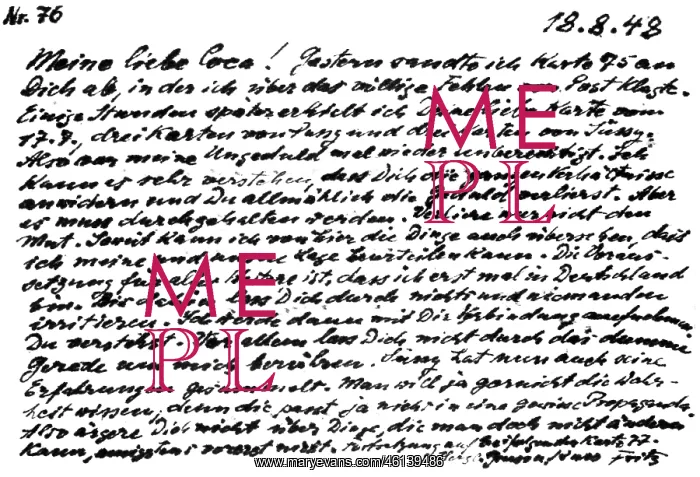 Nr. 76
18.8.48
Meine liebe Coca! Gestern sandte ich Karte 75 an
Dich ab, in der ich über das völlige Fehlen von Post klagte.
Einige Stunden später erhielt ich Deine liebe Karte vom
17.7, drei Karten von und drei Karten von Sussy.
Also war meine Ungeduld mal wieder unberechtigt. Ich
kann es sehr verstehen, dass Dich die ganzen Verhältnisse
anwidern und Du allmählich die Geduld verlierst. Aber
es muss durchgehalten werden. Verliere nur nicht den
Mut. Somit kann ich von hier die Dinge auch übersehen, dass
ich meine und unsere Lage beurteilen kann. Die Voraus-
setzung für alles Weitere ist, dass ich erst mal in Deutschland
bin. Bis dahin lass Dich durch nichts und niemanden
irritieren. Ich werde dann mit Dir Verbindung aufnehmen
Du verstehst. Vor allem lass Dich nicht durch das dumme
Gerede um mich berühren. hat nun auch seine
Erfahrungen gesammelt. Man will ja garnicht die Wahr-
heit wissen, denn die passt ja nicht in eine gewisse Propaganda.
Also ärgere Dich nicht über Dinge, die man doch nicht ändern
kann, wenigstens vorerst nicht. Fortsetzung auf beifolgender Karte 77.
Fritz
ME
PL
ME
PL
www.maryevans.com/46139486